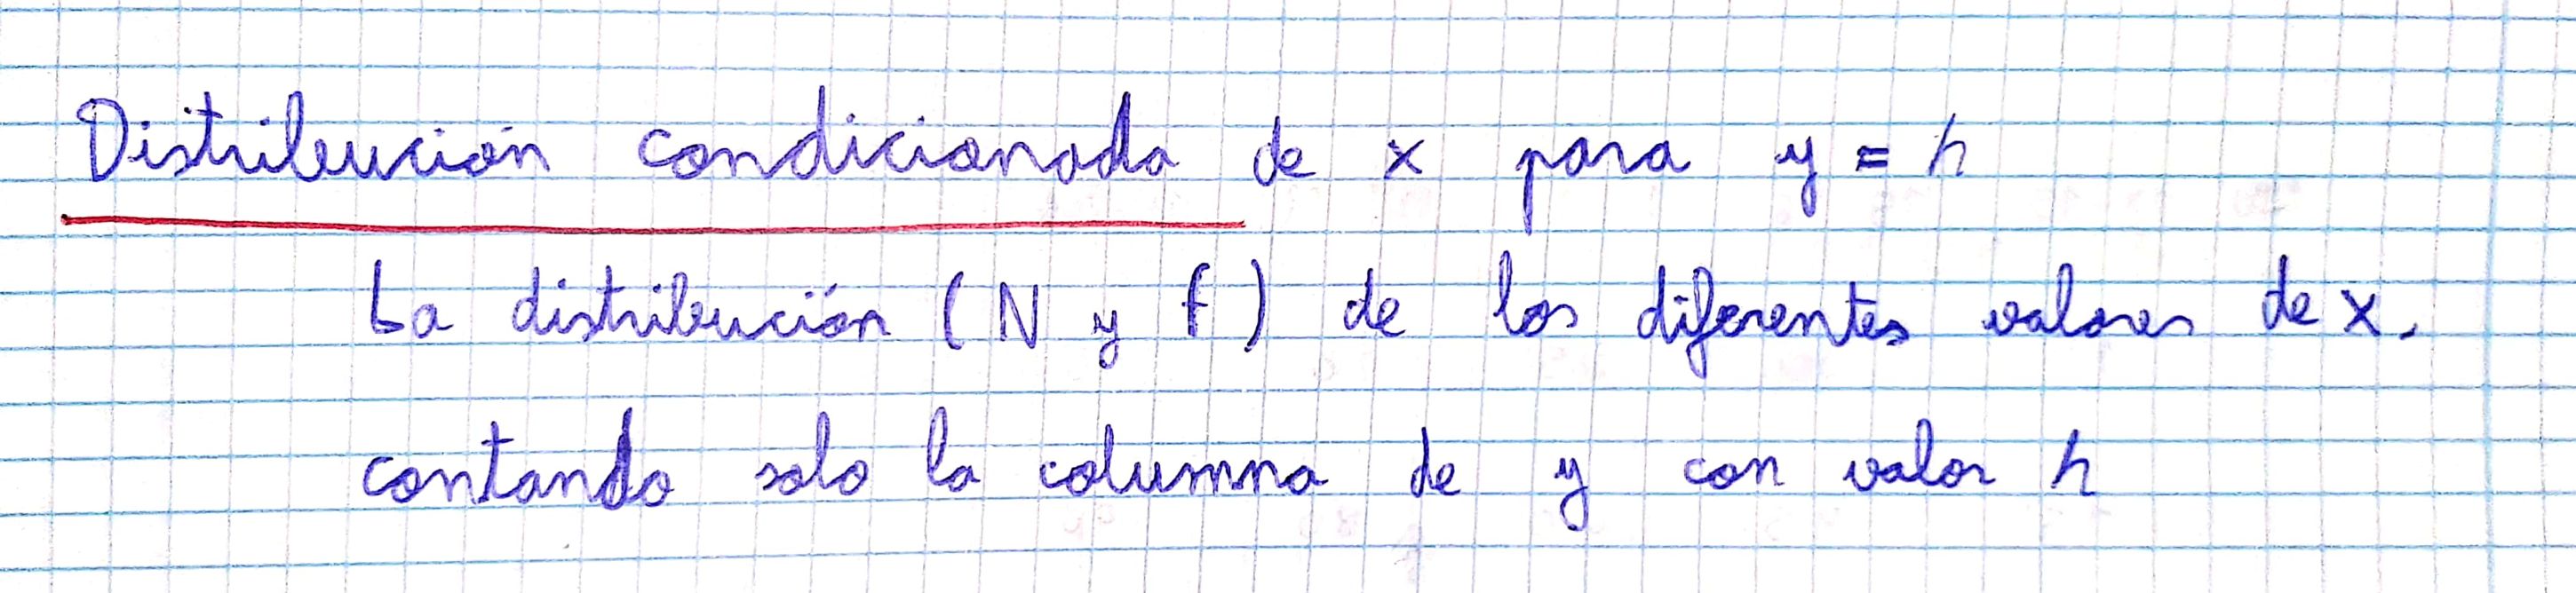 Distribución condicionada de x para y = h
La distribución (N y f) de los diferentes valores de x.
contando solo la columna de y con valor h